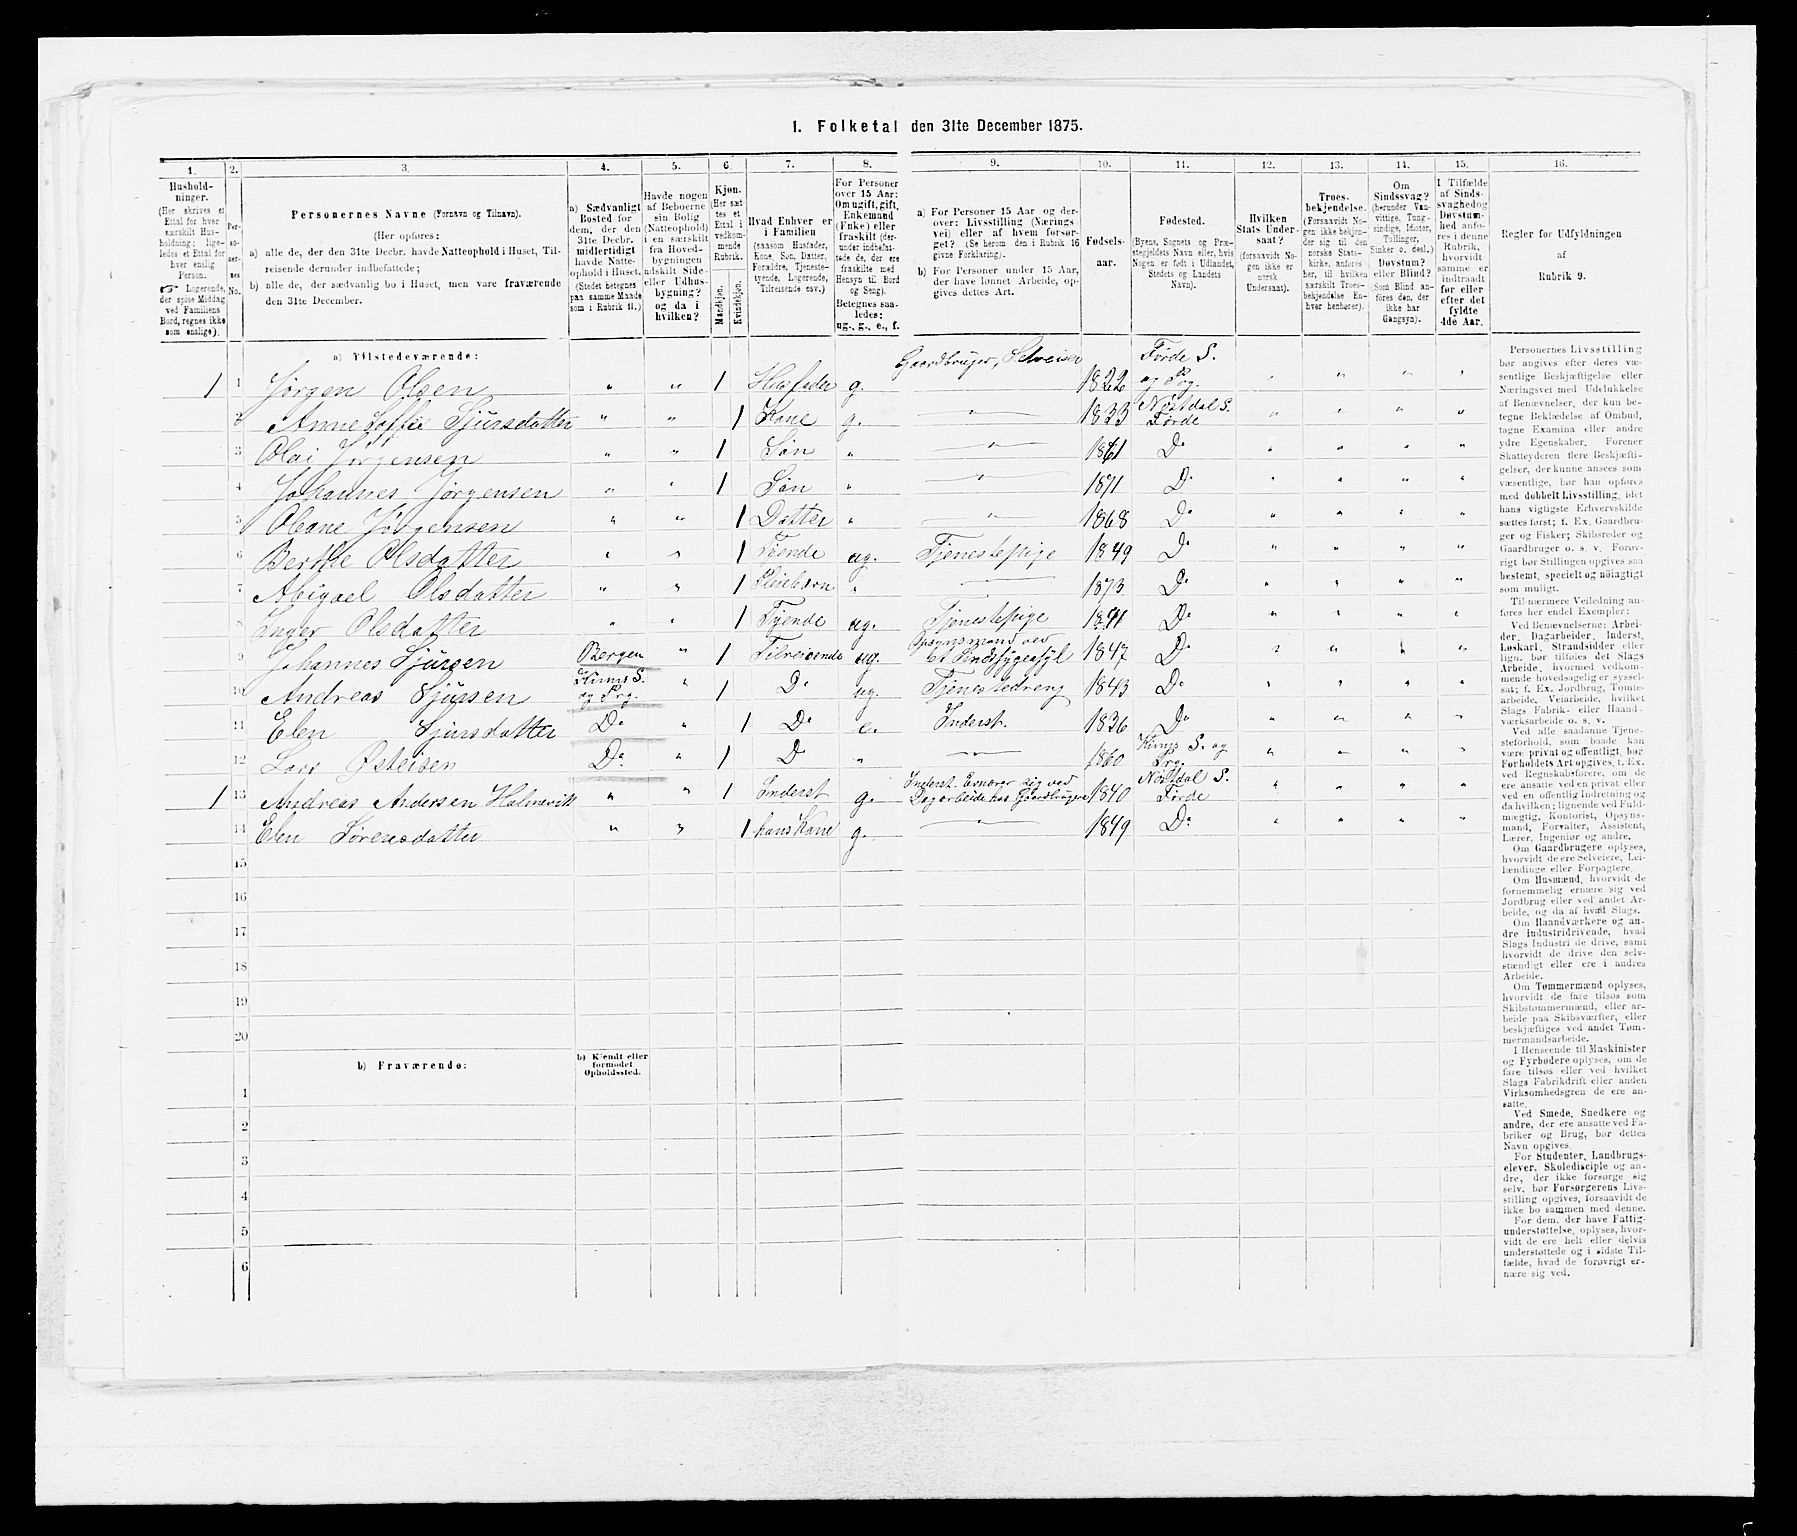 1. Folketal den 31te December 1875.
1. 2. 3. 4. 5. 6. 7. 8. 9. 10. 11. 12. 13. 14. 15. 16.
Hushold-
ninger.
(Her skrives et
Ettal for hver
særskilt Hus-
holdning; lige-
ledes et Ettal for
hver enslig
Person.
☞ Logerende,
der spise Middag
ved Familiens
Bord, regnes ikke
som enslige).
Per-
so-
ner-
nes
No.
Personernes Navne (Fornavn og Tilnavn).
(Her opføres:
a) alle de, der den 31te Decbr. havde Natteophold i Huset, Til-
reisende derunder indbefattede;
b) alle de, der sædvanlig bo i Huset, men vare fraværende
den 31te December.
a) Sædvanligt
Bosted for
dem, der den
31te Decbr.
midlertidigt
havde Natte-
ophold i Huset.
(Stedet betegnes
paa samme Maade
som i Rubrik 11.)
Havde nogen
af Beboerne
sin Bolig
(Natteophold)
i en særskilt
fra Hoved-
bygningen
adskilt Side-
eller Udhus-
bygning?
og da i
hvilken?
Kjøn.
(Her sæt-
tes et
Ettal i
vedkom-
mende
Rubrik.
Mandkjøn.
Kvindekjøn.
Hvad Enhver er
i Familien
(saasom Husfader,
Kone, Søn, Datter,
Forældre, Tjeneste-
tyende, Logerende,
Tilreisende osv.)
For Personer
over 15 Aar:
Om ugift, gift,
Enkemand
(Enke) eller
fraskilt (der-
under indbefat-
tede de, der ere
fraskilte med
Hensyn til Bord
og Seng).
Betegnes saa-
ledes:
ug., g., e., f.
a) For Personer 15 Aar og der-
over: Livsstilling (Nærings-
vei) eller af hvem forsør-
get? (Se herom den i Rubrik 16
givne Forklaring).
b) For Personer under 15 Aar,
der have lønnet Arbeide, op-
gives dettes Art.
Fødsels-
aar.
Fødested.
(Byens, Sognets og Præ-
stegjeldets Navn eller, hvis
Nogen er født i Udlandet,
Stedets og Landets
Navn).
Hvilken
Stats Under-
saat?
(forsaavidt No-
gen ikke er
norsk
Undersaat).
Troes-
bekjendelse.
(Forsaavidt No-
gen ikke bekjen-
der sig til den
norske Stats-
kirke, anføres
her, til hvilken
særskilt Troes-
bekjendelse En-
hver henhører).
Om
Sindssvag?
(herunder Van-
vittige, Tung-
sindige, Idioter,
Tullinger,
Sinker o. desl.)
Døvstum?
eller Blind?
(Som Blind an-
føres den, der
ikke har
Gangsyn).
I Tilfælde
af Sinds-
svaghed og
Døvstum-
hed anfø-
res i denne
Rubrik,
hvorvidt
samme er
indtraadt
før eller
efter det
fyldte
4de Aar.
Regler for Udfyldningen
af
Rubrik 9.
a) Tilstedeværende:
1 1 Jørgen Olsen " " 1 Husfader g. Gaardbruger, Selveier 1822 Førde S. og Prg. " " " "
2 Anne Soffie Sjursdatter " " 1 Kone g. " 1833 Nostdal S. Førde " " " "
3 Olai Jørgensen " " 1 Søn " " 1861 Do " " " "
4 Johannes Jørgensen " " 1 Søn " " 1871 Do " " " "
5 Oline Jørgensen " " 1 Datter " " 1868 Do " " " "
6 Berthe Olsdatter " " 1 Tjende ug. Tjenestepige 1849 Do " " " "
7 Abigael Olsdatter " " 1 Pleiebarn " " 1873 Do " " " "
8 Inger Olsdatter " " 1 Tyende ug. Tjenestepige 1841 Do " " " "
9 Johannes Sjursen Bergen " 1 Tilreisende ug. Opsynsmand ved et Sindssygeasyl 1847 Do " " " "
10 Andreas Sjursen Kinns S. og Prg. " 1 Do ug. Tjenestedreng 1843 Do " " " "
11 Elen Sjursdatter Do " 1 Do e. Inderst. 1836 Do " " " "
12 Lars Østeisen Do " 1 D " " 1860 Kinns S. og Prg. " " " "
1 13 Andreas Andersen Holmevik " " 1 Inderst g. Inderst. Ernærer sig ved Dagarbeide hos Gaardbrugere 1840 Nostdal S. Førde " " " "
14 Elen Sørensdatter " " 1 hans Kone g. " 1849 Do " " " "
15
16
17
18
19
20
b) Fraværende:
b) Kjendt eller
formodet
Opholdssted.
1
2
3
4
5
6
Personernes Livsstilling
bør angives efter deres væ-
sentlige Beskjæftigelse eller
Næringsvei med Udelukkelse
af Benævnelser, der kun be-
tegne Beklædelse af Ombud,
tagne Examina eller andre
ydre Egenskaber. Forener
Skatteyderen flere Beskjæfti-
gelser, der kunne ansees som
væsentlige, bør han opføres
med dobbelt Livsstilling, idet
hans vigtigste Erhvervskilde
sættes først; f. Ex. Gaardbru-
ger og Fisker; Skibsreder og
Gaardbruger o. s. v. Forøv-
rigt bør Stillingen opgives saa
bestemt, specielt og nöiagtigt
som muligt.
Til nærmere Veiledning an-
føres her endel Exempler:
Ved Benævnelserne: Arbei-
der, Dagarbeider, Inderst,
Løskarl, Strandsidder eller
lign. bør tilføies det Slags
Arbeide, hvormed vedkom-
mende hovedsagelig er syssel-
sat; f. Ex. Jordbrug, Tomte-
arbeide, Veiarbeide, hvilket
Slags Fabrik- eller Haand-
værksarbeide o. s. v.
Ved alle saadanne Tjene-
steforhold, som baade kan
være privat og offentligt, bør
Forholdets Art opgives, t. Ex.
ved Regnskabsførere, om de
ere ansatte ved en privat eller
ved en offentlig Indretning og
da hvilken; lignende ved Fuld-
mægtig, Kontorist, Opsyns-
mand, Forvalter, Assistent,
Lærer, Ingeniør og andre.
Om Gaardbrugere oplyses,
hvorvidt de ere Selveiere, Lei-
lændinge eller Forpagtere.
Om Husmænd, hvorvidt de
fornemmelig ernære sig ved
Jordbrug eller ved andet Ar-
beide, og da af hvad Slags.
Om Haandværkere og an-
dre Industridrivende, hvad
Slags Industri de drive, samt
hvorvidt de drive den selv-
stændigt eller ere i andres
Arbeide.
Om Tømmermænd oplyses,
hvorvidt de fare tilsøs som
Skibstømmermænd, eller ar-
beide paa Skibsværfter, eller
beskjæftiges ved andet Tøm-
mermandsarbeide.
I Henseende til Maskinister
og Fyrbødere oplyses, om de
fare tilsøs eller ved hvilket
Slags Fabrikdrift eller anden
Virksomhedsgren de ere an-
satte.
Ved Smede, Snedkere og
andre, der ere ansatte ved Fa-
briker og Brug, bør dettes
Navn opgives.
For Studenter, Landbrugs-
elever, Skoledisciple og an-
dre, der ikke forsørge sig
selv, bør Forsørgerens Livs-
stilling opgives, forsaavidt de
ikke bo sammen med denne.
For dem, der have Fattig-
understøttelse, oplyses, hvor-
vidt de ere helt eller delvis
understøttede og i sidste Til-
fælde, hvad de forøvrigt er-
nære sig ved.